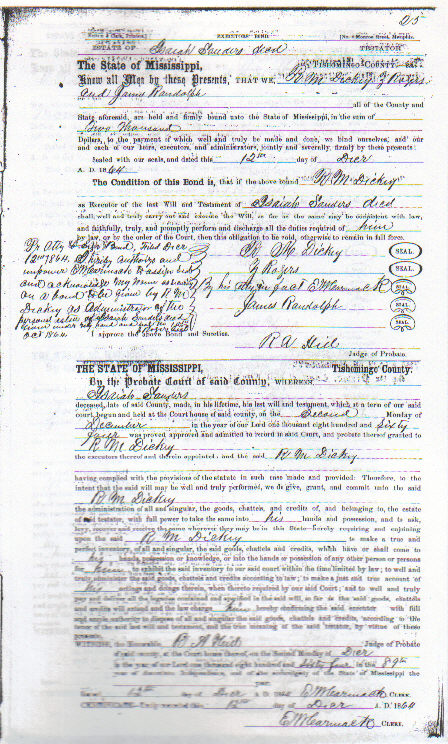 25
EXECUTORS' BOND
ESTATE OF Isaiah Sanders decd TESTATOR
The State of Mississippi, TISHOMINGO COUNTY
Know all Men by these Presents, THAT WE, R M Dickey Z Rogers
and James Randolph
all of the County and
State aforesaid, are held and firmly bound unto the State of Mississippi, in the sum of
Two Thousand
Dollars, to the payment of which well and truly be made and done, we bind ourselves, and our
and each of our heirs, executors, and administrators, jointly and severally, firmly by these presents:
Sealed with our seals, and dated this 12th day of Decr
A. D. 1864
The Condition of this Bond is, that if the above bound R M Dickey
as Executor of the last Will and Testament of Isaiah Sanders decd
shall, well and truly carry out and execute the Will, so far as the same may be consistent with law,
and faithfully, truly, and promptly perform and discharge all the duties required of him
by law, or by the order of the Court, then this obligation to be void, otherwise to remain in full force.
R. M. Dickey SEAL.
Z Rogers SEAL.
By his atty in fact E W Carmack SEAL.
James Randolph SEAL.
SEAL.
Filed Decr
12th 1864. I hereby authorize and
empower E W Carmack to assign
and acknowledge my name as security
on a bond to be given by R M
Dickey as Administrator of the
Oct 1864.
I approve the above Bond and Sureties.
Judge of Probate.
THE STATE OF MISSISSIPPI, Tishomingo County.
By the Probate Court of said County, WHEREAS,
Isaiah Sanders
deceased, late of said County, made, in his lifetime, his last will and testament, which at a term of our said
court, begun and held at the Court house of said county, on the Second Monday of
December in the year of our Lord one thousand eight hundred and sixty
four was proved approved and admitted to record in said Court, and probate thereof granted to
R M Dickey
the executors thereof and therein appointed and the said R M Dickey
having complied with the provisions of the statute in such case made and provided: Therefore, to the
intent that the said will may be well and truly performed, we do give, grant, and commit unto the said
R M Dickey
the administration of all and singular, the goods, chattels, and credits of, and belonging to the estate
of said testator, with full power to take the same into his hands and possession, and to ask,
levy, recover and receive the same wherever they may be in this State—hereby requiring and enjoining
upon the said R M Dickey to make a true and
perfect inventory, of all and singular, the said goods, chattels and credits, which have or shall come to
his hands, possession or knowledge, or into the hands or possession of any other person or persons
for him to exhibit the said inventory to our said court within the time limited by law; to well and
truly administer the said goods, chattels and credits according to law; to make a just and true account of
his actings and doings therein, when thereto required by our said Court; and to well and truly
pay and deliver the legacies contained and specified in the said will, as far as the said goods, chattels
and credits will extend and the law charge him hereby confirming the said executor with full
and ample authority to dispose of all and singular the said goods, chattels and credits, according to the
tenor of the said last will and testament, and the true meaning of the said testator, by virtue of these
presents.
WITNESS, the Honorable Judge of Probate
of said county, at the Court house thereof, on the Second Monday of Decr
in the year of our Lord one thousand eight hundred and sixty four in the 89th
year of American Independence, and of the sovereignty of the State of Mississippi the
12th day of Decr A. D. 1864 E W Carmack CLERK.
12th day of Decr A. D. 1864
E W Carmack CLERK.